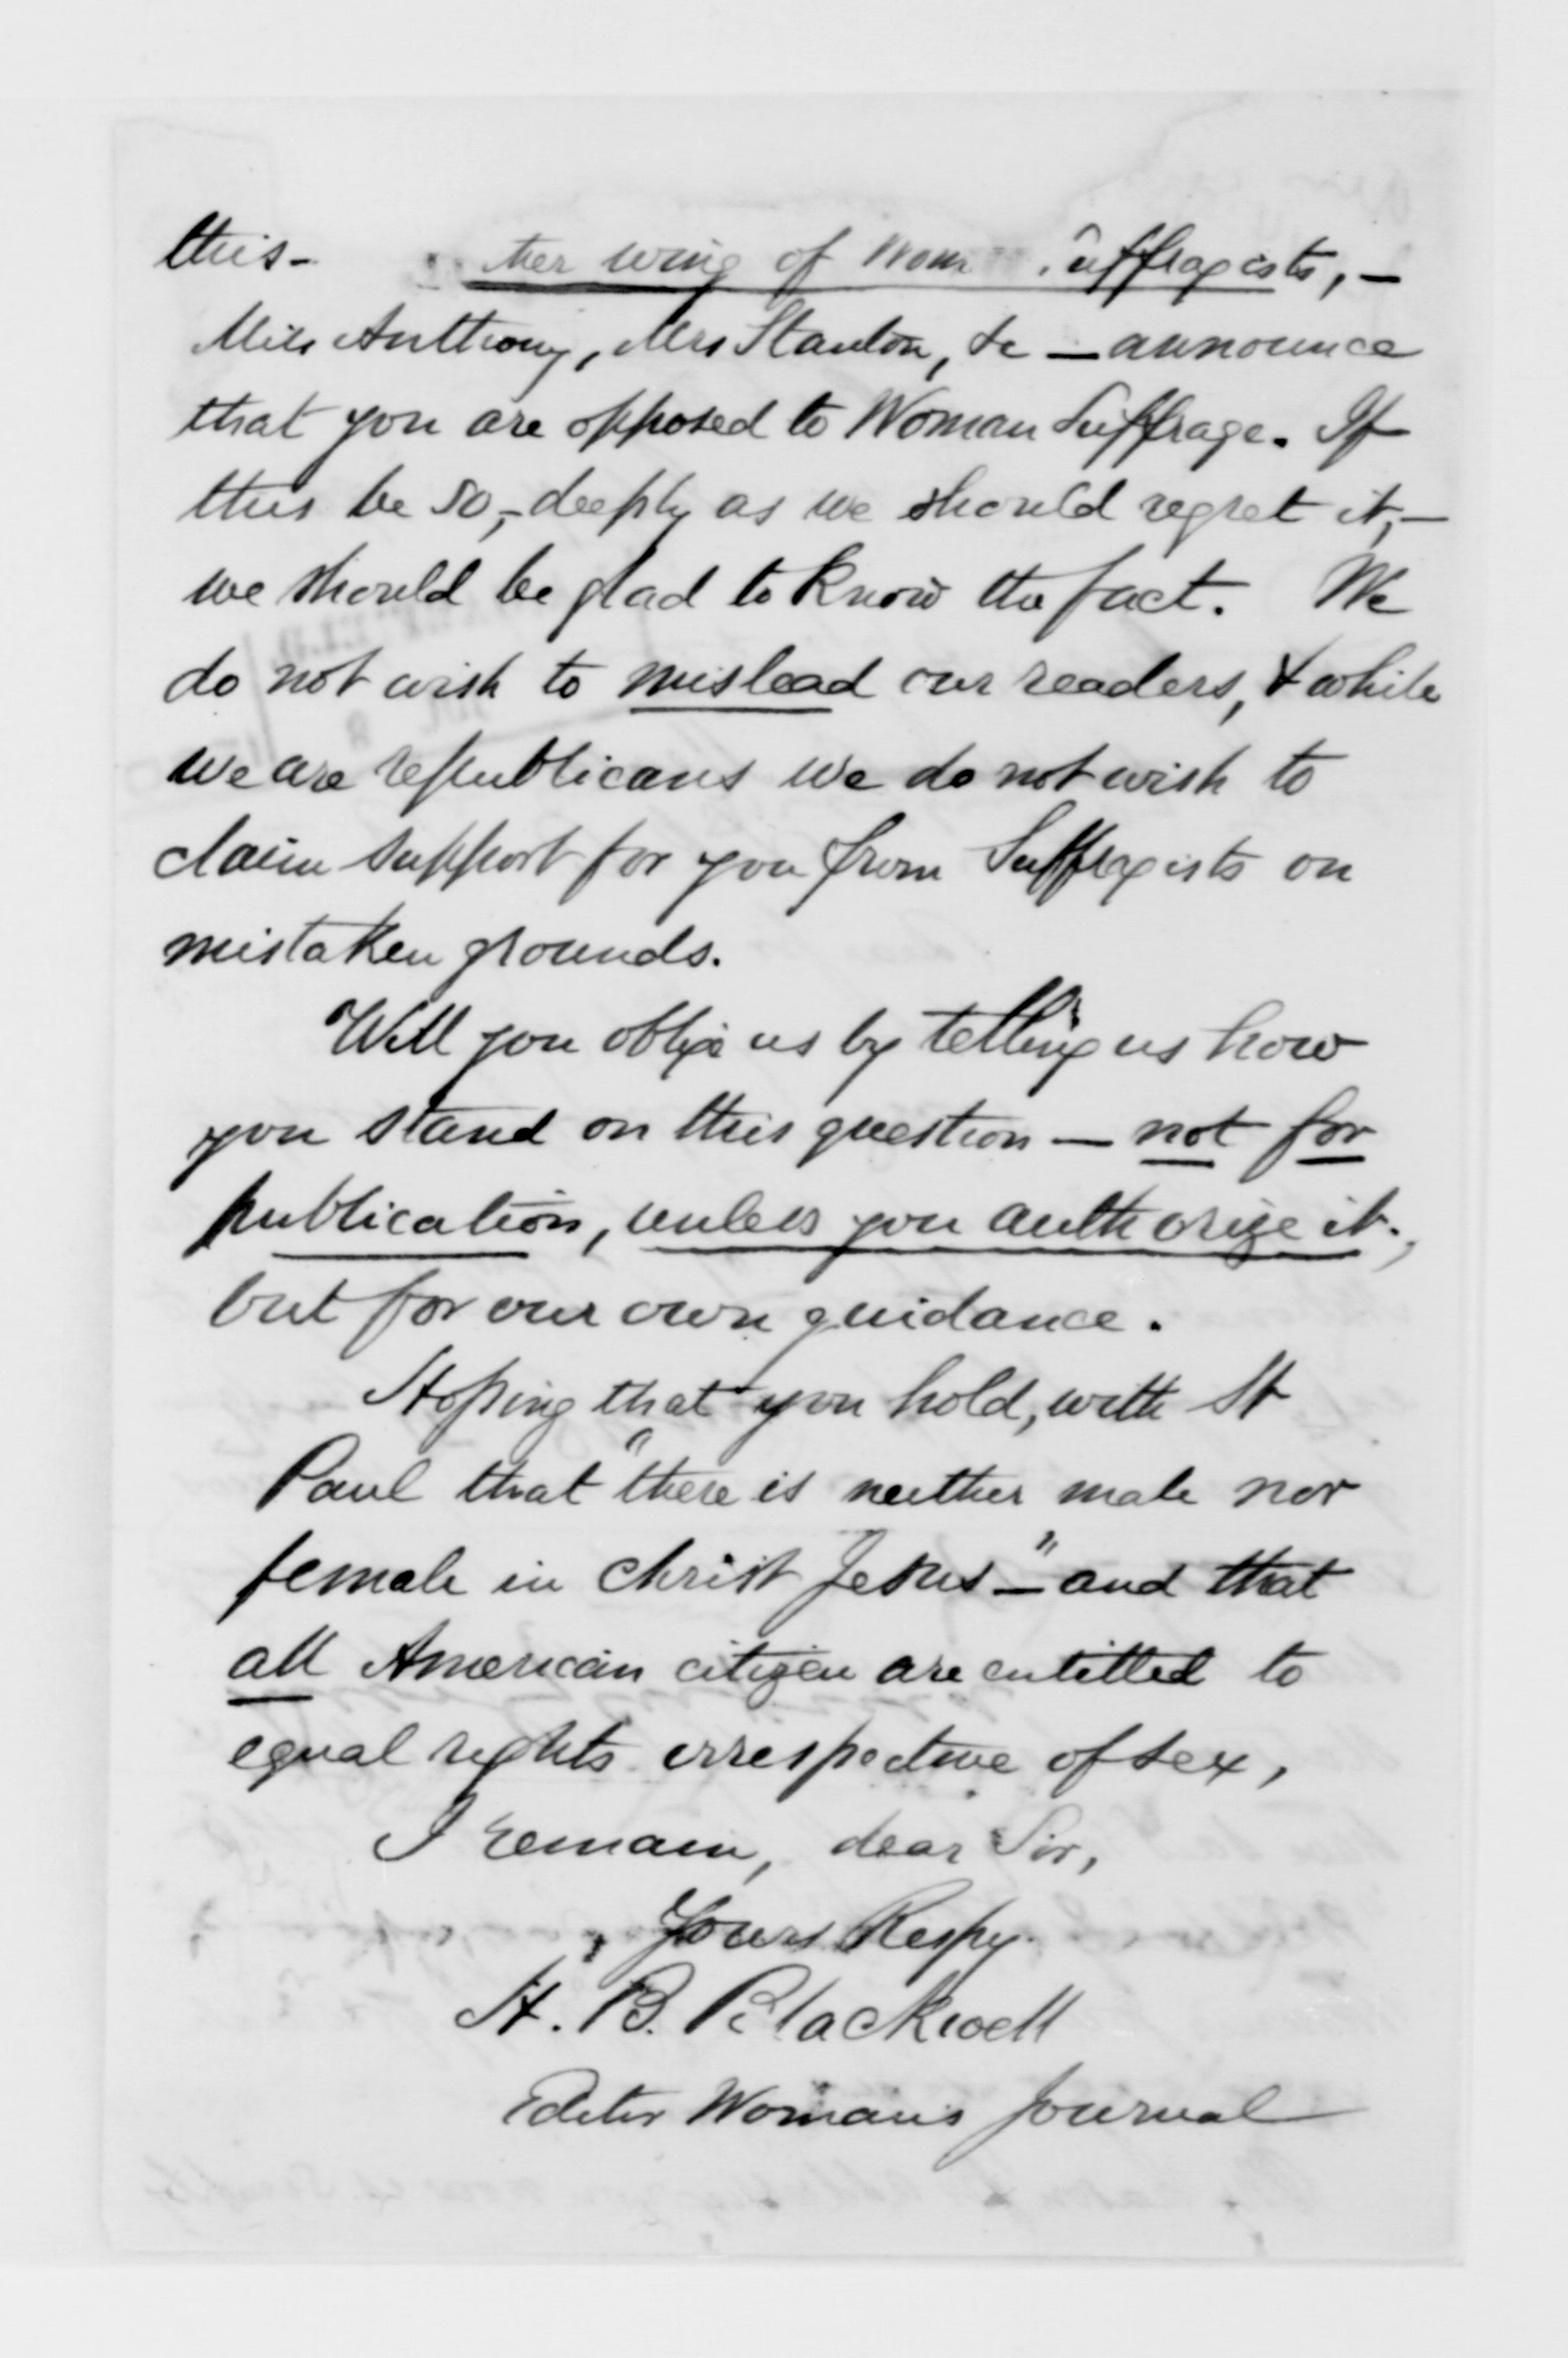 this- wing of Suffragists, -
Miss Anthony, Mrs Stanton, &c - announce
that you are opposed to Woman Suffrage. If
this be so,- deeply as we should regret it,-
we should be glad to know the fact. We
do not wish to mislead our readers, & while
we are republicans we do not wish to
claim support for you from Suffragists on
mistaken grounds.
Will you oblige us by telling us how
you stand on this question - not for
publication, unless you authorize it.,
but for our own guidance.
Hoping that you hold, with St
Paul that "there is neither male nor
female in Christ Jesus -" and that
all American citizen are entitled to
equal rights irrespective of sex,
I remain, dear Sir,
Yours Respy.
H. B. Blackwell
Editor Woman's Journal